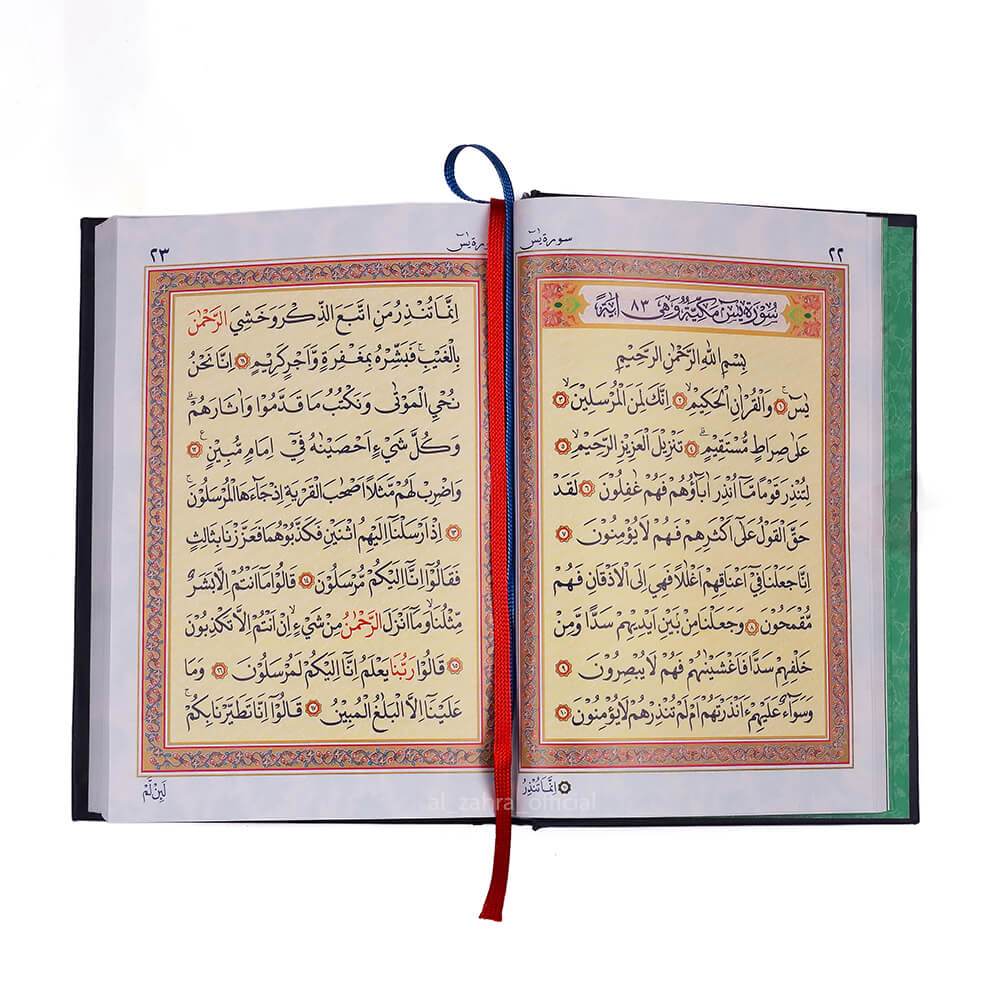 ٢٢
سورة يٰسٓ
سُورَةُ يٰسٓ مَكِّيَّةٌ وَهِيَ ٨٣ اٰيَةً
بِسْمِ اللّٰهِ الرَّحْمٰنِ الرَّحِيْمِ
يٰسٓ ۚ ١ وَالْقُرْاٰنِ الْحَكِيْمِ ۙ ٢ اِنَّكَ لَمِنَ الْمُرْسَلِيْنَ ۙ ٣
عَلٰى صِرَاطٍ مُسْتَقِيْمٍ ۗ ٤ تَنْزِيْلَ الْعَزِيْزِ الرَّحِيْمِ ۙ ٥
لِتُنْذِرَ قَوْمًا مَّآ اُنْذِرَ اٰبَآؤُهُمْ فَهُمْ غٰفِلُوْنَ ٦ لَقَدْ
حَقَّ الْقَوْلُ عَلٰٓى اَكْثَرِهِمْ فَهُمْ لَا يُؤْمِنُوْنَ ٧
اِنَّا جَعَلْنَا فِيْٓ اَعْنَاقِهِمْ اَغْلٰلًا فَهِيَ اِلَى الْاَذْقَانِ فَهُمْ
مُّقْمَحُوْنَ ٨ وَجَعَلْنَا مِنْ بَيْنِ اَيْدِيْهِمْ سَدًّا وَّمِنْ
خَلْفِهِمْ سَدًّا فَاَغْشَيْنٰهُمْ فَهُمْ لَا يُبْصِرُوْنَ ٩
وَسَوَآءٌ عَلَيْهِمْ ءَاَنْذَرْتَهُمْ اَمْ لَمْ تُنْذِرْهُمْ لَا يُؤْمِنُوْنَ ١٠
اِنَّمَا تُنْذِرُ
٢٣
سورة يٰسٓ
اِنَّمَا تُنْذِرُ مَنِ اتَّبَعَ الذِّكْرَ وَخَشِيَ الرَّحْمٰنَ
بِالْغَيْبِ ۚ فَبَشِّرْهُ بِمَغْفِرَةٍ وَّاَجْرٍ كَرِيْمٍ ١١ اِنَّا نَحْنُ
نُحْيِ الْمَوْتٰى وَنَكْتُبُ مَا قَدَّمُوْا وَاٰثَارَهُمْ ۗ
وَكُلَّ شَيْءٍ اَحْصَيْنٰهُ فِيْٓ اِمَامٍ مُّبِيْنٍ ۚ ١٢
وَاضْرِبْ لَهُمْ مَّثَلًا اَصْحٰبَ الْقَرْيَةِ اِذْ جَآءَهَا الْمُرْسَلُوْنَ ۚ
١٣ اِذْ اَرْسَلْنَآ اِلَيْهِمُ اثْنَيْنِ فَكَذَّبُوْهُمَا فَعَزَّزْنَا بِثَالِثٍ
فَقَالُوْٓا اِنَّآ اِلَيْكُمْ مُّرْسَلُوْنَ ١٤ قَالُوْا مَآ اَنْتُمْ اِلَّا بَشَرٌ
مِّثْلُنَا ۙ وَمَآ اَنْزَلَ الرَّحْمٰنُ مِنْ شَيْءٍ ۙ اِنْ اَنْتُمْ اِلَّا تَكْذِبُوْنَ
١٥ قَالُوْا رَبُّنَا يَعْلَمُ اِنَّآ اِلَيْكُمْ لَمُرْسَلُوْنَ ١٦ وَمَا
عَلَيْنَآ اِلَّا الْبَلٰغُ الْمُبِيْنُ ١٧ قَالُوْٓا اِنَّا تَطَيَّرْنَا بِكُمْ ۚ
لَئِنْ لَّمْ
al_zahra_official